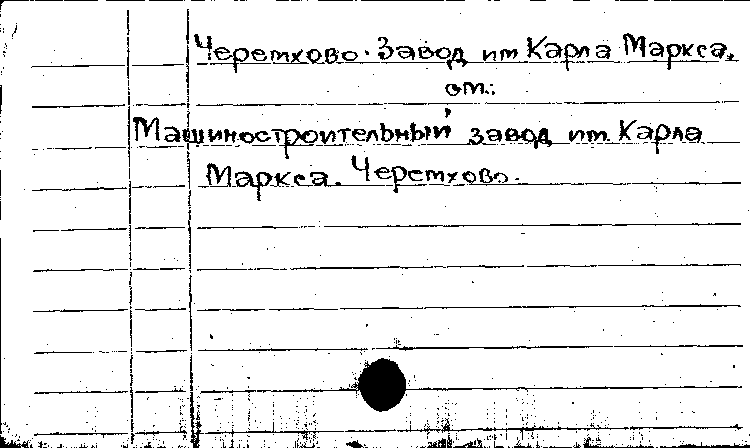 Черемхово. Завод им Карла Маркса.
см.:
Машиностроительный завод им. Карла
Маркса. Черемхово.